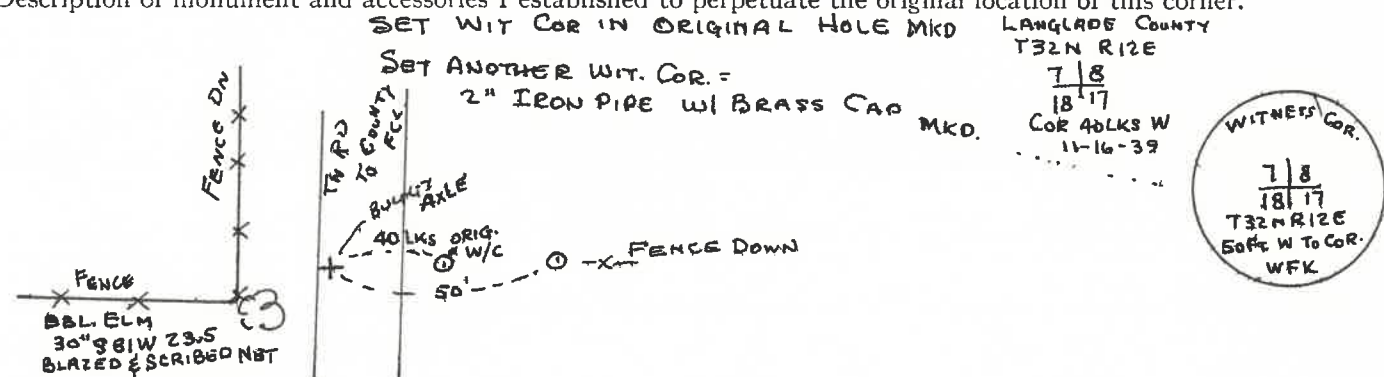 Description of monument and accessories I established to perpetuate the original location of this corner.
SET WIT COR IN ORIGINAL HOLE MKD
LANGLADE COUNTY
T32N R12E
7 | 8
18 | 17
COR 40LKS W
11-16-39
SET ANOTHER WIT. COR. =
2" IRON PIPE W/ BRASS CAP MKD.
WITNESS COR.
7 | 8
18 | 17
T32N R12E
50FT W TO COR.
WFK
FENCE DN
TN RD
TO COUNTY
AXLE
40 LKS ORIG.
W/C
FENCE DOWN
50'
FENCE
DBL. ELM
30" S81W 23.5
BLAZED & SCRIBED NBT